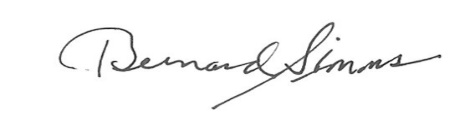 Bernard Simms